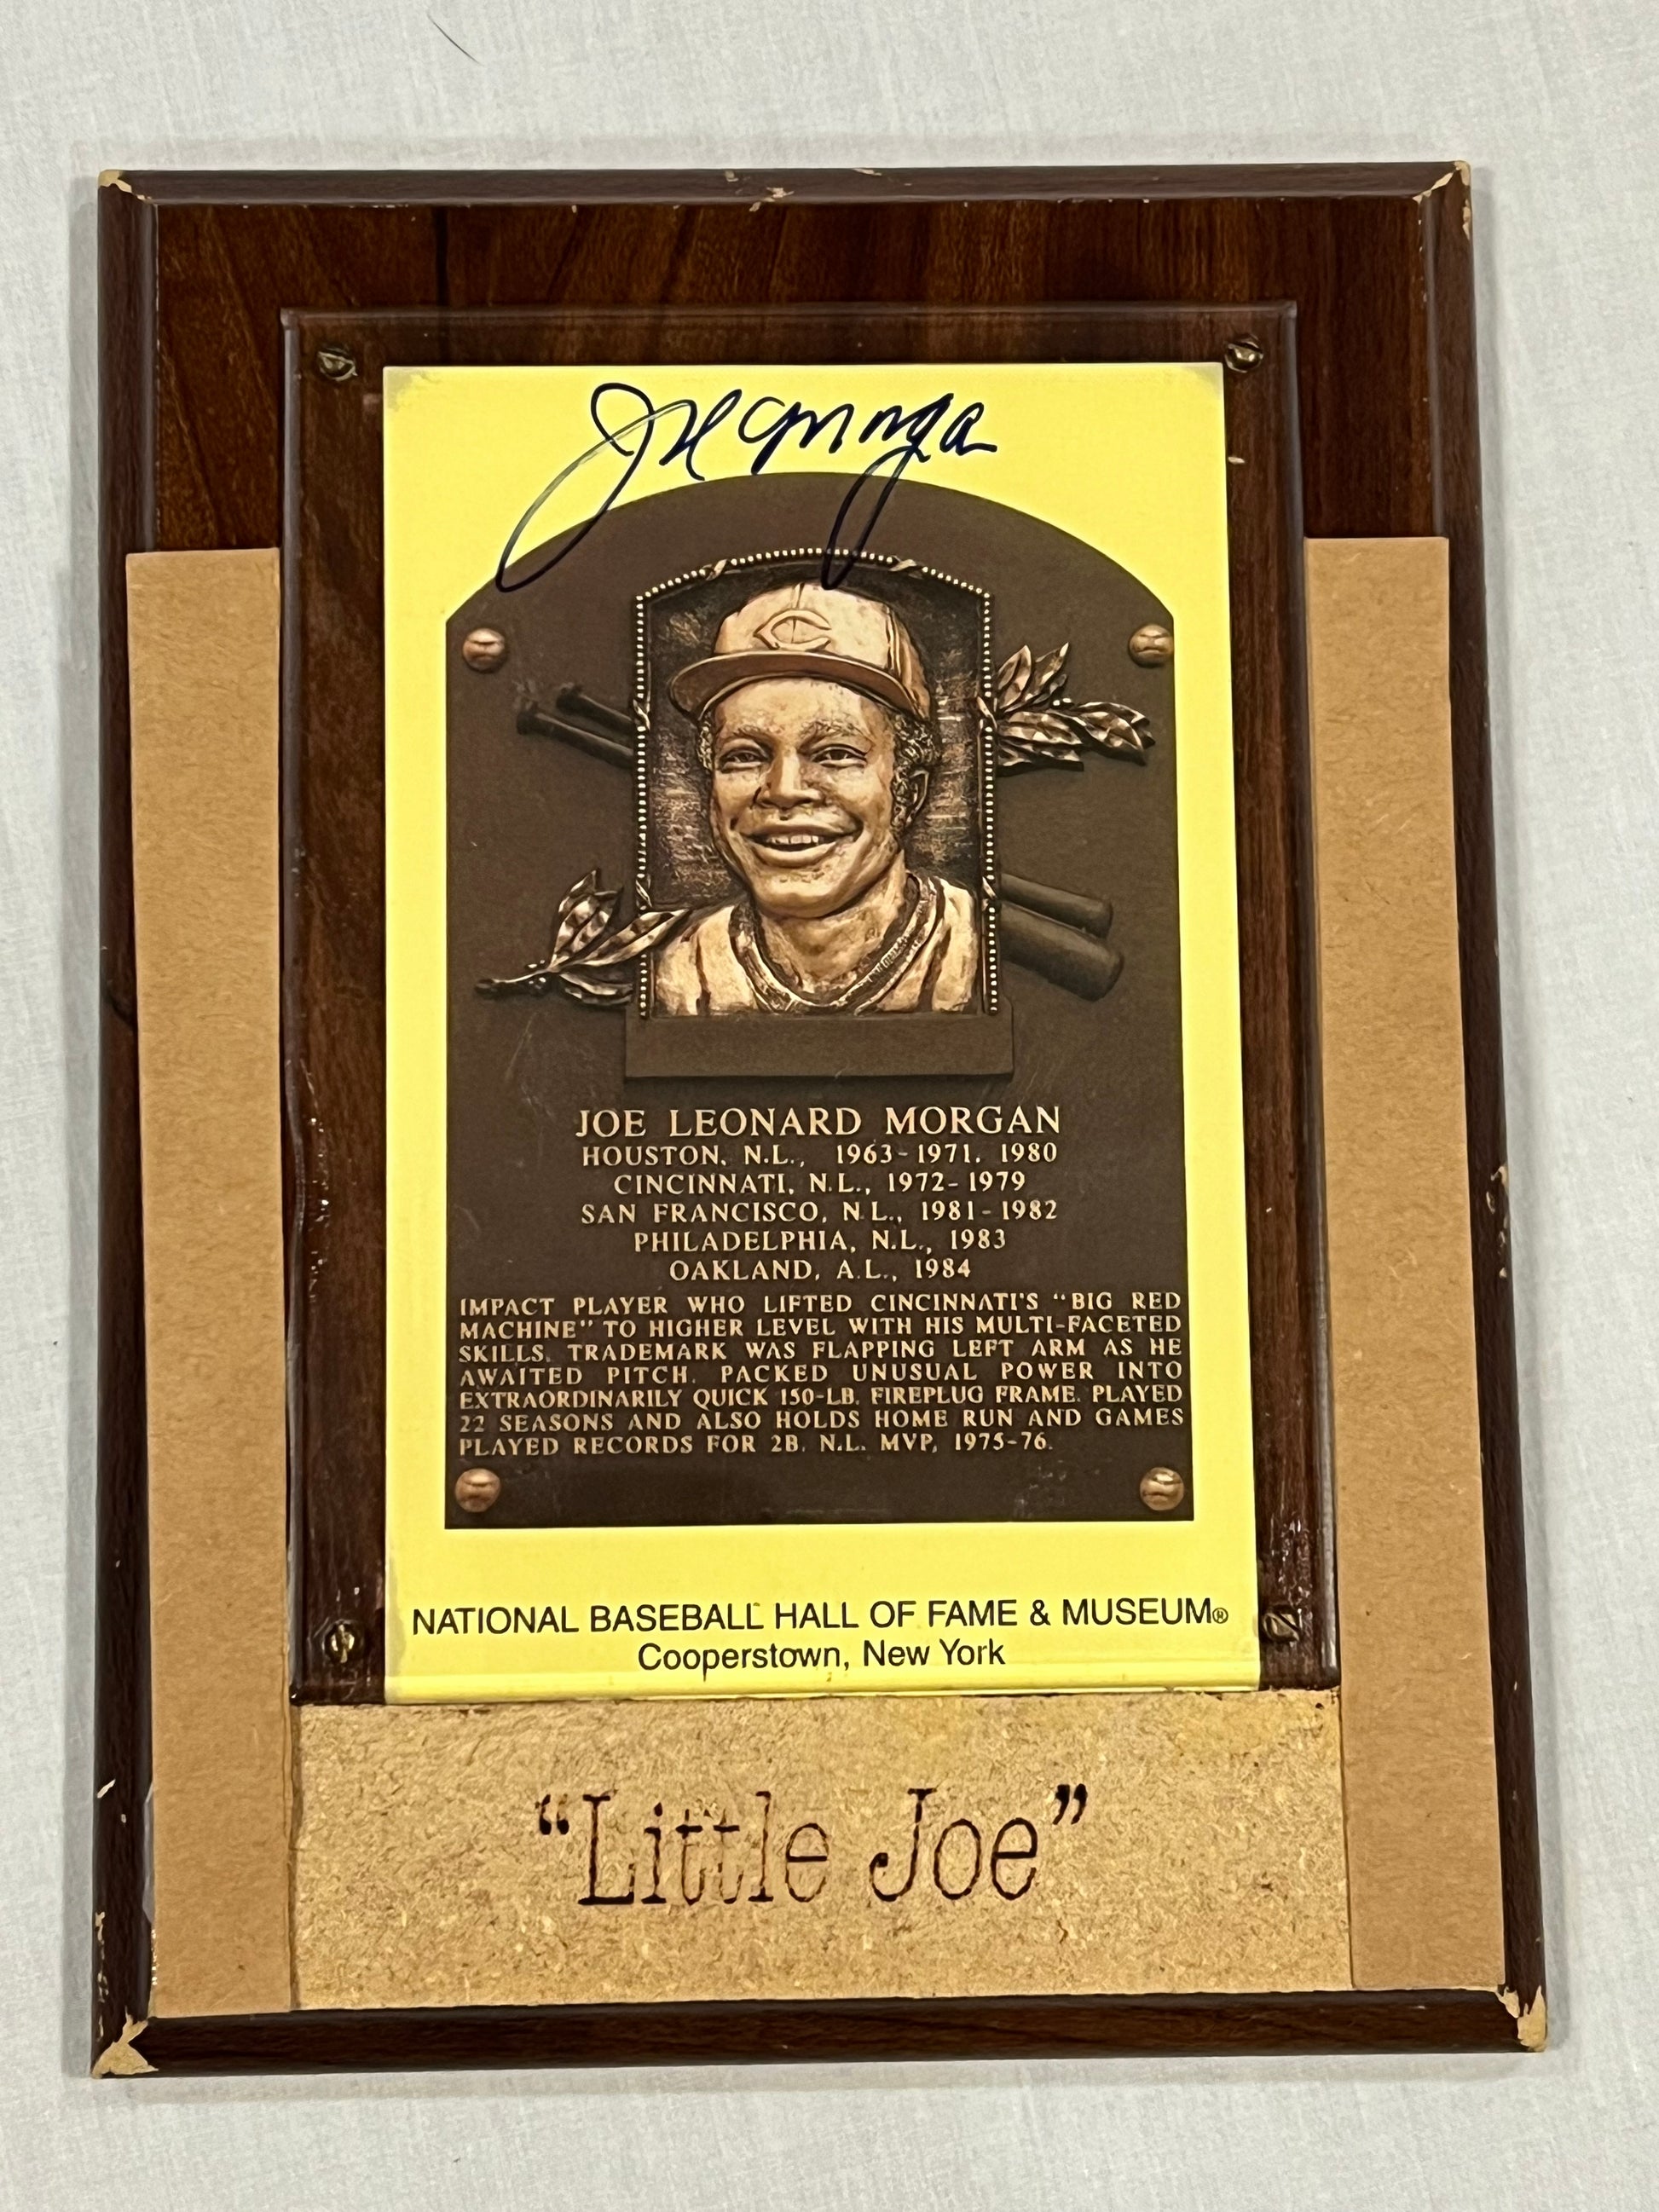 Joe Morgan
C
JOE LEONARD MORGAN
HOUSTON, N.L., 1963-1971, 1980
CINCINNATI, N.L., 1972-1979
SAN FRANCISCO, N.L., 1981-1982
PHILADELPHIA, N.L., 1983
OAKLAND, A.L., 1984
IMPACT PLAYER WHO LIFTED CINCINNATI'S "BIG RED
MACHINE" TO HIGHER LEVEL WITH HIS MULTI-FACETED
SKILLS. TRADEMARK WAS FLAPPING LEFT ARM AS HE
AWAITED PITCH. PACKED UNUSUAL POWER INTO
EXTRAORDINARILY QUICK 150-LB. FIREPLUG FRAME. PLAYED
22 SEASONS AND ALSO HOLDS HOME RUN AND GAMES
PLAYED RECORDS FOR 2B. N.L. MVP, 1975-76.
NATIONAL BASEBALL HALL OF FAME & MUSEUM®
Cooperstown, New York
“Little Joe”